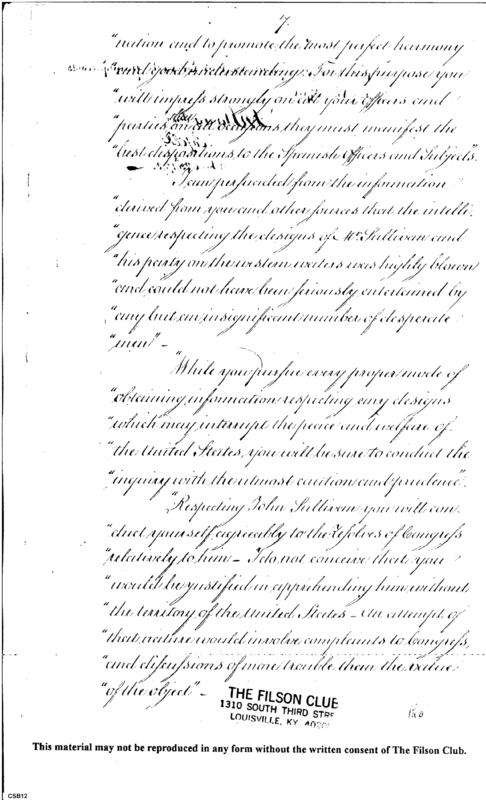 7.
"nation and to promote the most perfect harmony
"and good understanding. For this purpose you
"will impress strongly on all your Officers and
"parties on all occasions, they must manifest the
"best dispositions, to the Spanish Officers and Subjects.
"I am persuaded from the information
"derived from you and other sources that the intelli-
"gence respecting the designs of Mr Sullivan and
"his party on the western waters was highly blown
"and could not have been seriously entertained by
"any but an insignificant number of desperate
"men" –
"While you pursue every proper mode of
"obtaining information respecting any designs
"which may interrupt the peace and welfare of
"the United States, you will be sure to conduct the
"inquiry with the utmost caution and prudence".
"Respecting John Sullivan you will con
"duct yourself agreeably to the resolves of Congress
"relatively to him – I do not conceive that you
"would be justified in apprehending him without
"the territory of the United States – An attempt of
"that nature would involve complaints to Congress,
"and discussions of more trouble than the value
"of the object" –
THE FILSON CLUB
1310 SOUTH THIRD STRE
LOUISVILLE, KY
This material may not be reproduced in any form without the written consent of The Filson Club.
CSB12